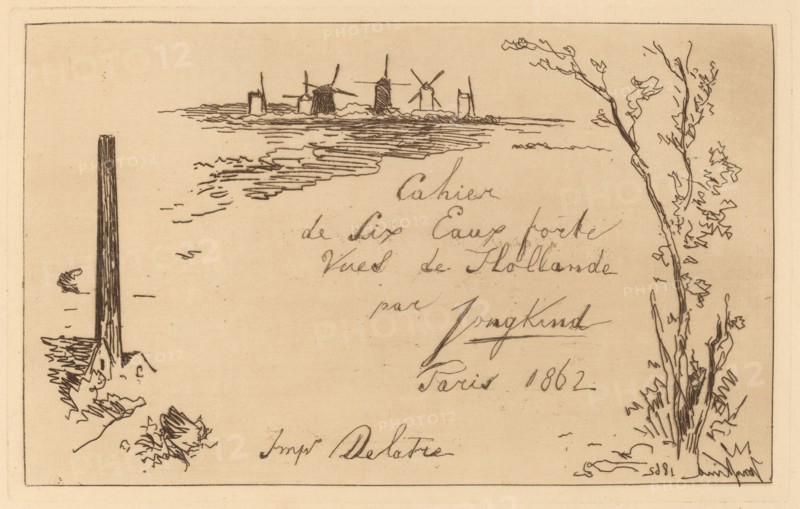 Cahier
de Six Eaux forte
Vues de Hollande
par Jongkind
Paris 1862
Impr Delatre
Jongkind 1862
PHOTO12